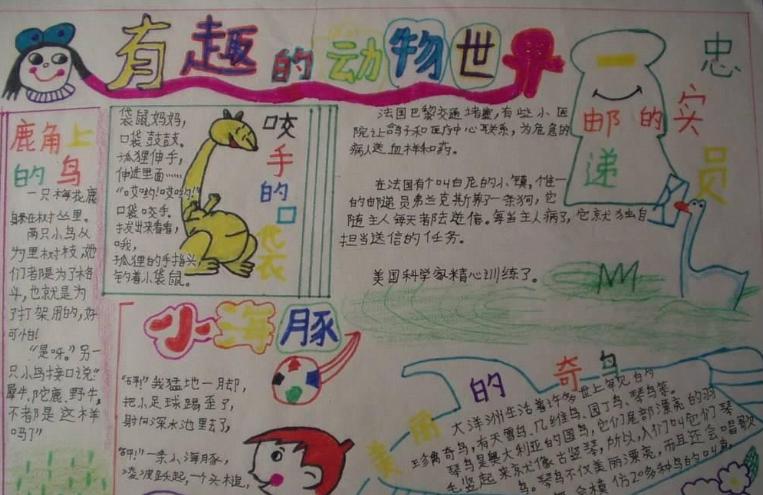 有趣的动物世界
鹿角上
的鸟
一只梅花鹿
躲在树丛里。
两只小鸟以
为是树枝，她
们老是为了格
斗，也就是为
了打架用的，好
可怕！
“是呀。”另一
只小鸟接口说：“
犀牛，陀鹿，野牛，
不都是这样
吗？”
袋鼠妈妈，
口袋鼓鼓。
狐狸伸手，
伸进里面……
“哎哟！哎哟！”
口袋咬手。
拔出来看看，
哦，
狐狸的手指头，
钓着小袋鼠。
咬手的口袋
法国巴黎交通堵塞，有些小医
院让鸽子和医疗中心联系，为危急的
病人送血样和药。
在法国有个叫白尼的小镇，惟一
的邮递员弗兰克斯养了一条狗，它
随主人每天都去送信。每当主人病了，它就独自
担当送信的任务。
美国科学家精心训练了。
忠实的邮递员
小海豚
“砰！”我猛地一脚，
把小足球踢歪了，
射向深水池里去了，
“砰！”一条小海豚，
凌波跃起，一个头槌，
美丽的奇鸟
大洋洲生活着许多世上罕见的
珍禽奇鸟，有天堂鸟、几维鸟、园丁鸟、琴鸟等。
琴鸟是奥大利亚的国鸟，它们尾部漂亮的羽
毛竖起来京尤像古竖琴，所以，人们叫它们琴
鸟。琴鸟不仅美丽漂亮，而且还会唱歌
会模仿20多种鸟的叫声